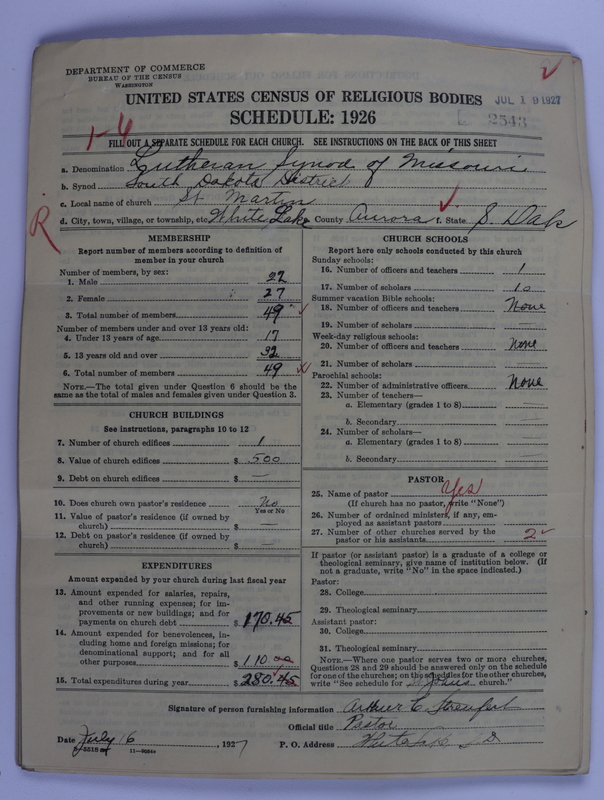 DEPARTMENT OF COMMERCE
BUREAU OF THE CENSUS
WASHINGTON
2
UNITED STATES CENSUS OF RELIGIOUS BODIES
JUL 19 1927
SCHEDULE: 1926
2543
1-4
FILL OUT A SEPARATE SCHEDULE FOR EACH CHURCH. SEE INSTRUCTIONS ON THE BACK OF THIS SHEET
a. Denomination Lutheran Synod of Missouri
b. Synod South Dakota District
c. Local name of church St. Martin
d. City, town, village, or township, etc. White Lake County Aurora f. State S. Dak
R
MEMBERSHIP
Report number of members according to definition of
member in your church
Number of members, by sex:
1. Male 22
2. Female 27
3. Total number of members 49
Number of members under and over 13 years old:
4. Under 13 years of age 17
5. 13 years old and over 32
6. Total number of members 49
NOTE.—The total given under Question 6 should be the
same as the total of males and females given under Question 3.
CHURCH BUILDINGS
See instructions, paragraphs 10 to 12
7. Number of church edifices 1
8. Value of church edifices $ 500
9. Debt on church edifices $ —
10. Does church own pastor's residence No
Yes or No
11. Value of pastor's residence (if owned by
church) $
12. Debt on pastor's residence (if owned by
church) $ —
EXPENDITURES
Amount expended by your church during last fiscal year
13. Amount expended for salaries, repairs,
and other running expenses; for im-
provements or new buildings; and for
payments on church debt $ 170.45
14. Amount expended for benevolences, in-
cluding home and foreign missions; for
denominational support; and for all
other purposes $ 110.00
15. Total expenditures during year $ 280.45
CHURCH SCHOOLS
Report here only schools conducted by this church
Sunday schools:
16. Number of officers and teachers 1
17. Number of scholars 10
Summer vacation Bible schools:
18. Number of officers and teachers None
19. Number of scholars —
Week-day religious schools:
20. Number of officers and teachers None
21. Number of scholars —
Parochial schools:
22. Number of administrative officers None
23. Number of teachers—
a. Elementary (grades 1 to 8)
b. Secondary
24. Number of scholars—
a. Elementary (grades 1 to 8)
b. Secondary
PASTOR
25. Name of pastor Yes
(If church has no pastor, write "None")
26. Number of ordained ministers, if any, em-
ployed as assistant pastors
27. Number of other churches served by the
pastor or his assistants 2
If pastor (or assistant pastor) is a graduate of a college or
theological seminary, give name of institution below. (If
not a graduate, write "No" in the space indicated.)
Pastor:
28. College
29. Theological seminary
Assistant pastor:
30. College
31. Theological seminary
NOTE.—Where one pastor serves two or more churches,
Questions 28 and 29 should be answered only on the schedule
for one of the churches; on the schedules for the other churches,
write "See schedule for church."
Signature of person furnishing information Arthur C.
Official title Pastor
Date July 16, 1927 P. O. Address